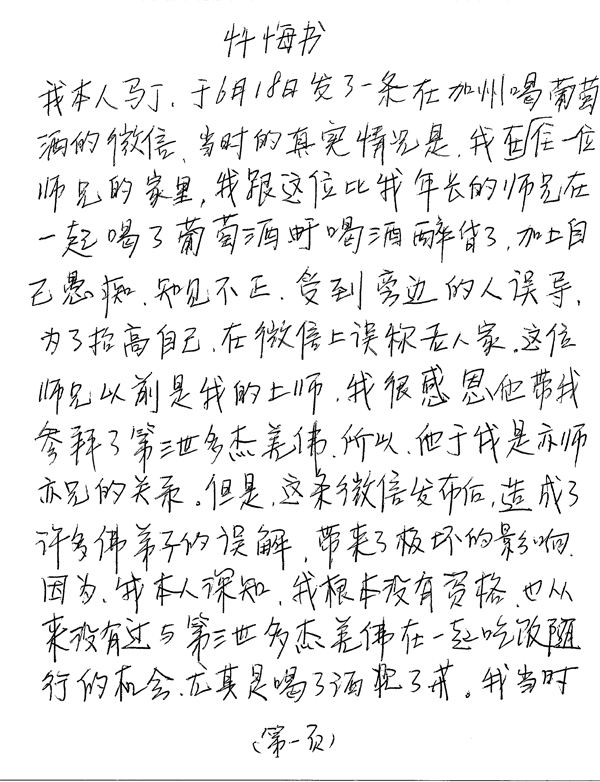 忏悔书
我本人马丁,于6月18日发了一条在加州喝葡萄
酒的微信,当时的真实情况是,我到住一位
师兄的家里,我跟这位比我年长的师兄在
一起喝了葡萄酒时喝酒醉皆了,加上自
己愚痴、知见不正、受到旁边的人误导,
为了抬高自己,在微信上误称老人家。这位
师兄以前是我的上师,我很感恩他带我
参拜了第三世多杰羌佛,所以,他于我是亦师
亦兄的关系。但是,这条微信发布后,造成了
许多佛弟子的误解,带来了极坏的影响.
因为,我本人深知,我根本没有资格,也从
来没有过与第三世多杰羌佛在一起吃饭随
行的机会,尤其是喝了酒犯了戒。我当时
(第一页)